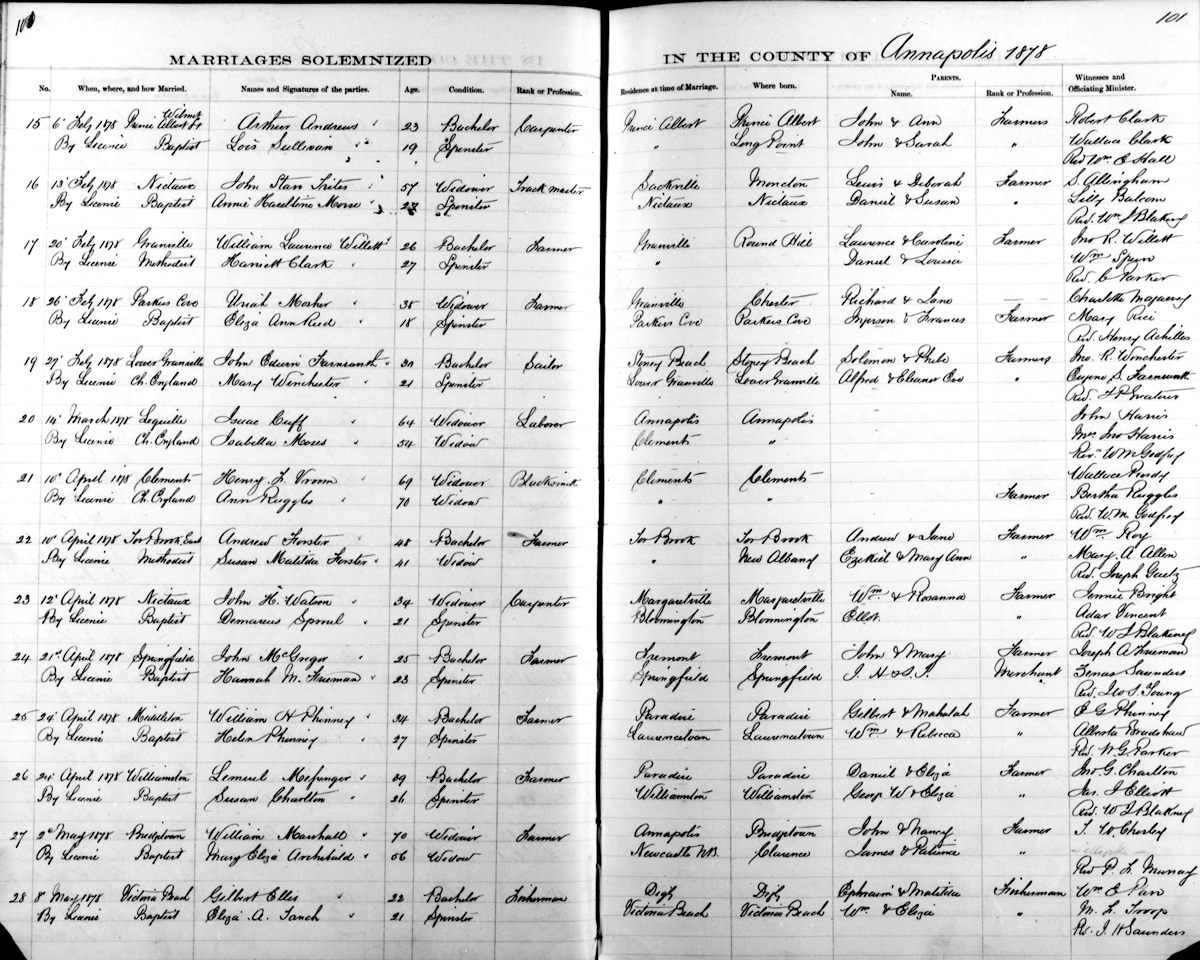 100
101
MARRIAGES SOLEMNIZED
IN THE COUNTY OF Annapolis 1878
No. When, where, and how Married. Names and Signatures of the parties. Age. Condition. Rank or Profession. Residence at time of Marriage. Where born. PARENTS. Name. Rank or Profession. Witnesses and Officiating Minister.
Wilmot
15 6' Feby 1878 Prince Albert Arthur Andrews 23 Bachelor Carpenter Prince Albert Prince Albert John & Ann Farmers Robert Clark
By Licence Baptist Lois Sullivan 19 Spinster " Long Point John & Sarah " Wallace Clark
Rev Wm E Hall
16 13' Feby 1878 Nictaux John Starr Trites 57 Widower Track master Sackville Moncton Lewis & Deborah Farmer S. Allingham
By Licence Baptist Annie Haseltine Morse 27 Spinster Nictaux Nictaux Daniel & Susan " Balcom
Rev. Wm J Blakney
17 20' Feby 1878 Granville William Laurence Willett 26 Bachelor Farmer Granville Round Hill Laurence & Caroline Farmer Jno R. Willett
By Licence Methodist Harriett Clark 27 Spinster " Daniel & Louisa Wm Spurr
Rev C Parker
18 26' Feby 1878 Parkers Cove Uriah Mosher 38 Widower Farmer Granville Chester Richard & Jane Charlotte
By Licence Baptist Eliza Ann Reed 18 Spinster Parkers Cove Parkers Cove & Frances Farmer Mary Rice
Rev. Henry Achilles
19 27' Feby 1878 Lower Granville John Edwin Farnsworth 30 Bachelor Sailor Stoney Beach Stoney Beach Solomon & Phebe Farmers Jno. R. Winchester
By Licence Ch. England Mary Winchester 21 Spinster Lower Granville Lower Granville Alfred & Eleanor " Eugene S. Farnsworth
Rev. F P Greatorex
20 14' March 1878 Lequille Isaac Cuff 64 Widower Laborer Annapolis Annapolis John Harris
By Licence Ch. England Isabella Moses 54 Widow Clements " Mrs Jno Harris
Rev. W M Godfrey
21 10' April 1878 Clements Henry L Vroom 69 Widower Blacksmith Clements Clements Wallace Purdy
By Licence Ch. England Ann Ruggles 70 Widow " " Farmer Bertha Ruggles
Rev. W. M. Godfrey
22 10' April 1878 Tor Brook East Andrew Forster 48 Bachelor Farmer Tor Brook Tor Brook Andrew & Jane Farmer Wm Roy
By Licence Methodist Susan Matilda Forster 41 Widow " New Albany Ezekiel & Mary Ann " Mary A. Allen
Rev. Joseph Gaetz
23 12' April 1878 Nictaux John H. Watson 34 Widower Carpenter Margaretville Margaretville Wm & Rosanna Farmer Jennie Bright
By Licence Baptist Demarcus Sproul 21 Spinster Bloomington Bloomington Elliot " Adar Vincent
Rev W J Blakeney
24 21st April 1878 Springfield John McGregor 25 Bachelor Farmer Fremont Fremont John & Mary Farmer Joseph A Freeman
By Licence Baptist Hannah M. Freeman 23 Spinster Springfield Springfield I. H & S. I. Merchant Zenas Saunders
Rev. Jno S. Young
25 24' April 1878 Middleton William H Phinney 34 Bachelor Farmer Paradise Paradise Gilbert & Mahalah Farmer E G Phinney
By Licence Baptist Helen Phinney 27 Spinster Laurencetown Laurencetown Wm & Rebecca " Alberta Bradshaw
Rev. W G Parker
26 24' April 1878 Williamston Lemuel Messinger 39 Bachelor Farmer Paradise Paradise Daniel & Eliza Farmer Jno G. Charlton
By Licence Baptist Susan Charlton 26 Spinster Williamston Williamston George W & Eliza " Jas. J Elliott
Rev. W J Blakney
27 2d May 1878 Bridgetown William Marshall 70 Widower Farmer Annapolis Bridgetown John & Nancy Farmer T. W Chesley
By Licence Baptist Mary Eliza Archibald 56 Widow Newcastle N.B. Clarence James & Patience "
Rev P. L. Murray
28 8 May 1878 Victoria Beach Gilbert Ellis 22 Bachelor Fisherman Digby Digby Ephraim & Matilda Fisherman Wm E Parr
By Licence Baptist Eliza A. Tanch 21 Spinster Victoria Beach Victoria Beach Wm. & Eliza " M. L. Troop
Rv. J. H Saunders